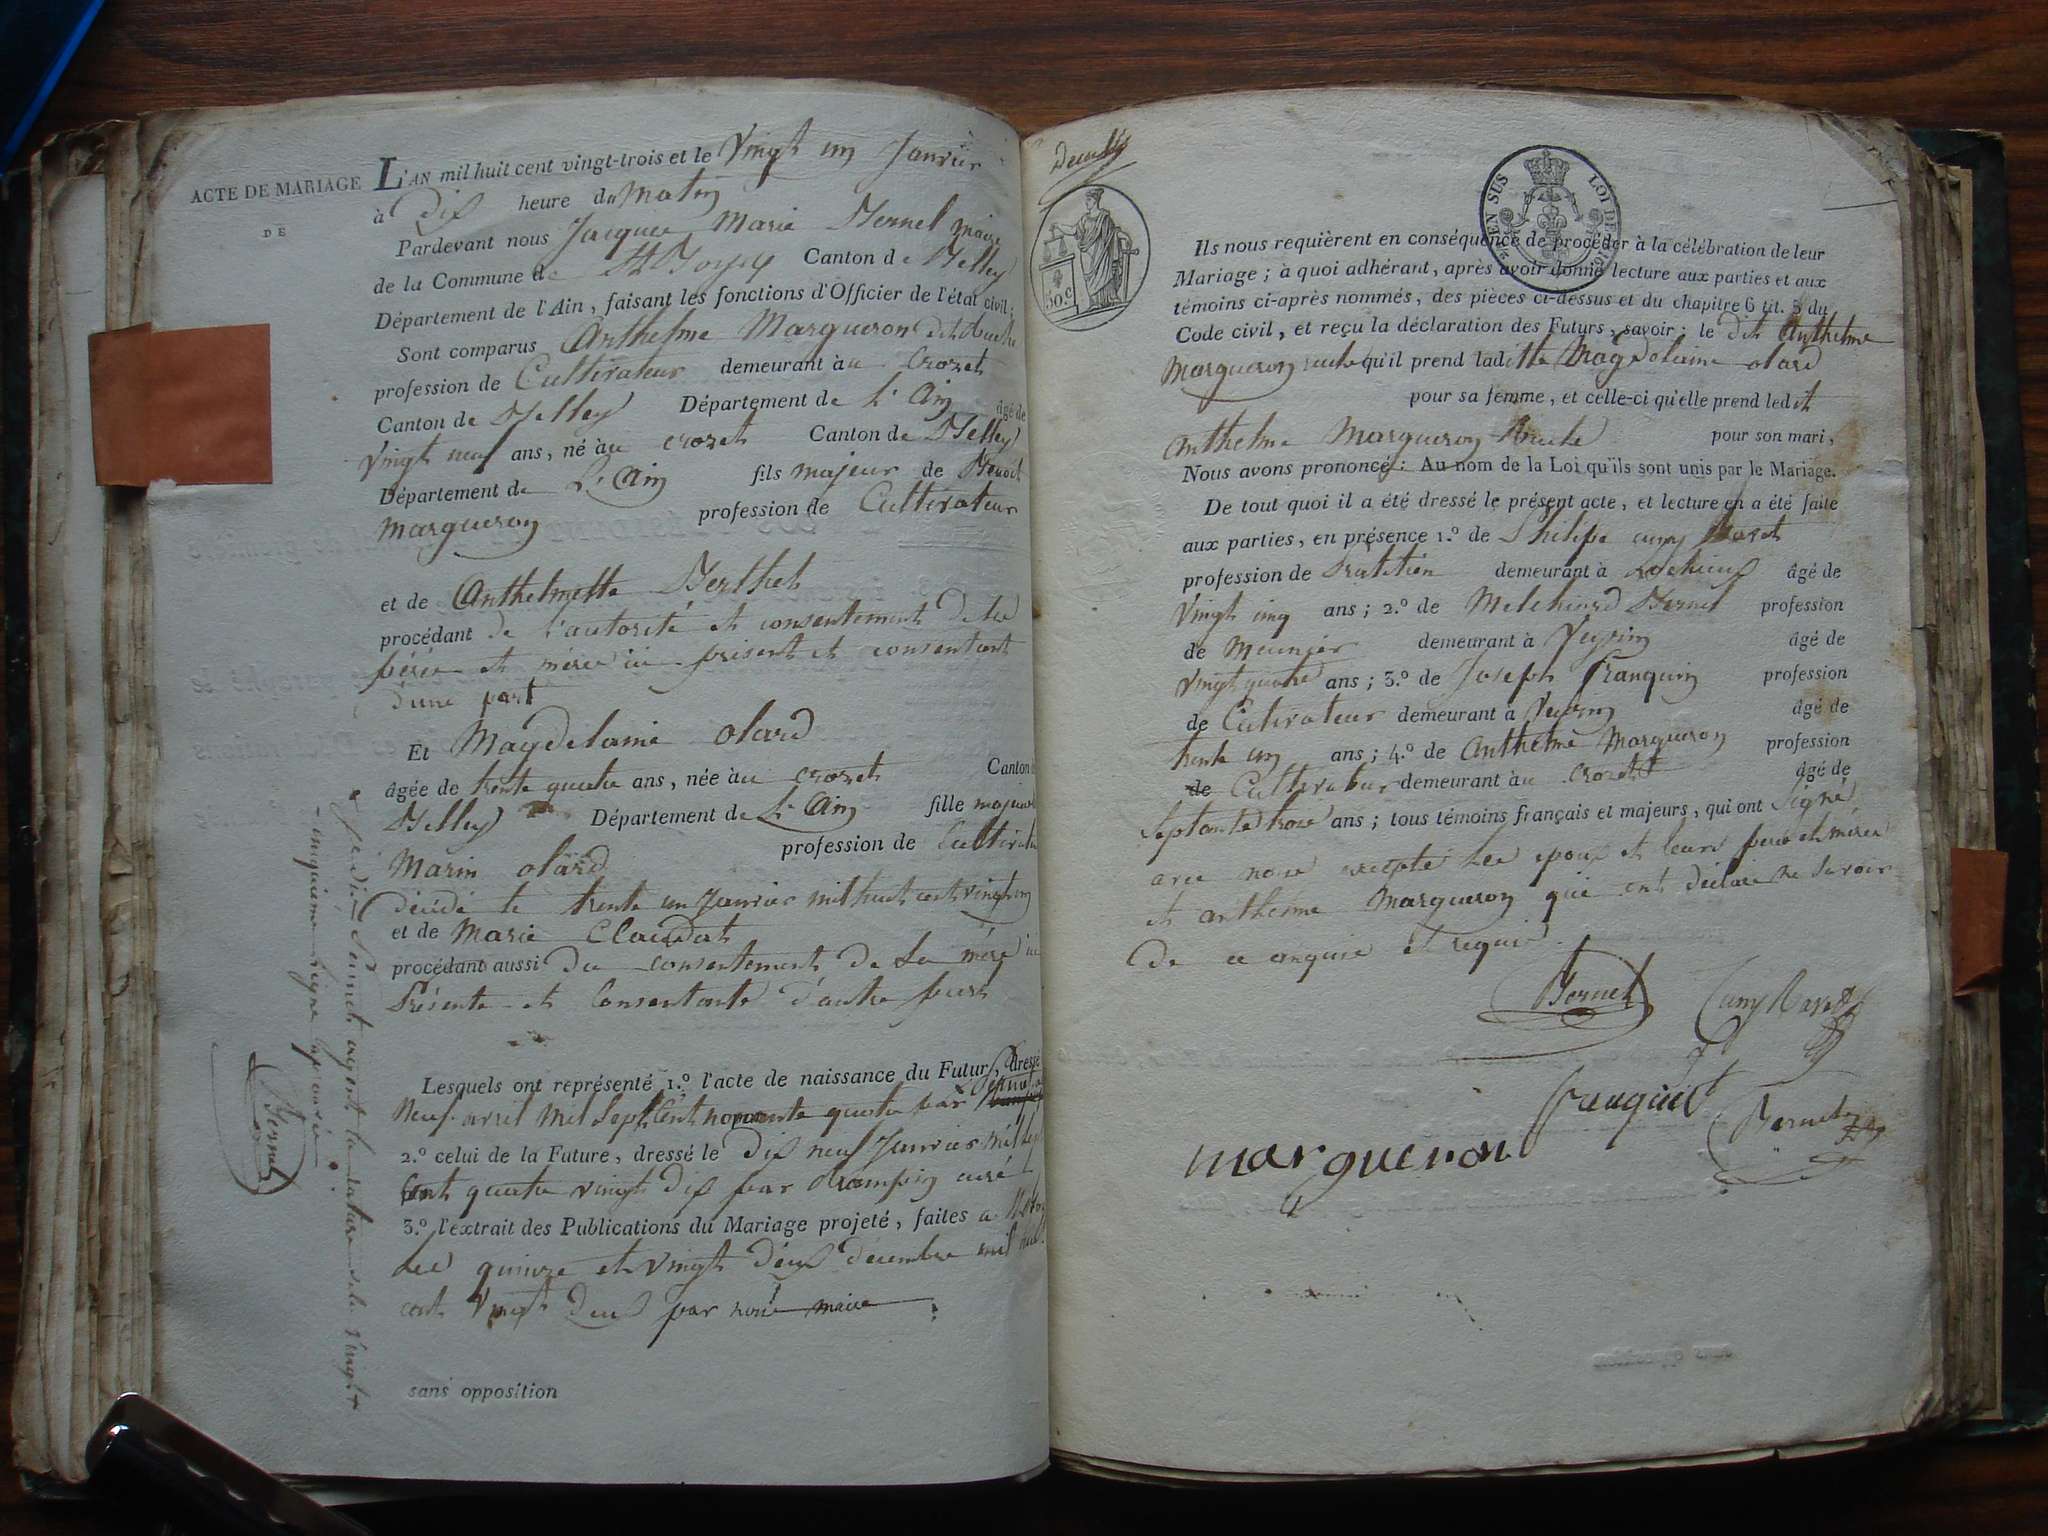 ACTE DE MARIAGE
DE
L'AN mil huit cent vingt-trois et le Vingt un Janvier
à Dix heure du Matin
Pardevant nous Jacques Marie Bernel maire
de la Commune de Canton de Belley
Département de l'Ain, faisant les fonctions d'Officier de l'état civil;
Sont comparus Anthelme Margueron dit
profession de Cultivateur demeurant à au Crozet
Canton de Belley Département de L'Ain âgé de
Vingt neuf ans, né à au crozet Canton de Belley
Département de L'Ain fils majeur de Benoit
Margueron profession de Cultivateur
et de Anthelmette Berthet
procédant de l'autorité et consentement de
père et mère ici présent et consentant
d'une part
Et Magdelaine olard
âgée de trente quatre ans, née à au crozet Canton
Belley Département de L'Ain fille majeure
Marin olard profession de Cultivateur
décédé le trente un Janvier mil huit cent vingt un
et de Marie Claudat
procédant aussi du consentement de sa mère ici
Présente et Consentante d'autre part
Lesquels ont représenté 1.º l'acte de naissance du Futur, dressé
Neuf avril Mil Sept Cent nonante quatre par
2.º celui de la Future, dressé le Dix neuf Janvier mil sept
Cent quatre vingt dix par curé
3.º l'extrait des Publications du Mariage projeté, faites a
les quinze et vingt deux decembre mil huit
cent Vingt Deux par nous maire
sans opposition
ayant la rature de la vingt
cinquieme ligne
Bernel
30.C
EN SUS
LOI DE
Ils nous requièrent en conséquence de procéder à la célébration de leur
Mariage; à quoi adhérant, après avoir donné lecture aux parties et aux
témoins ci-après nommés, des pièces ci-dessus et du chapitre 6 tit. 5 du
Code civil, et reçu la déclaration des Futurs, savoir: le dit Anthelme
Margueron qu'il prend laditte Magdelaine olard
pour sa femme, et celle-ci qu'elle prend ledit
Anthelme Margueron pour son mari,
Nous avons prononcé: Au nom de la Loi qu'ils sont unis par le Mariage.
De tout quoi il a été dressé le présent acte, et lecture en a été faite
aux parties, en présence 1.º de Philipe cuny Ravet
profession de Pratitien demeurant à Lochieux âgé de
Vingt cinq ans; 2.º de Melchiord Bernel profession
de Meunier demeurant à Veyrin âgé de
vingt quatre ans; 3.º de Joseph Franquin profession
de Cutivateur demeurant à Veyrin âgé de
trente un ans; 4.º de Anthelme Margueron profession
de Cultivateur demeurant à au crozet âgé de
Septante trois ans; tous témoins français et majeurs, qui ont Signé
avec nous excepté les epoux et leurs pere et mères
et anthelme Margueron qui ont déclaré ne Savoir
De ce enquis et requis.
Bernel
Cuny Ravet
Margueron